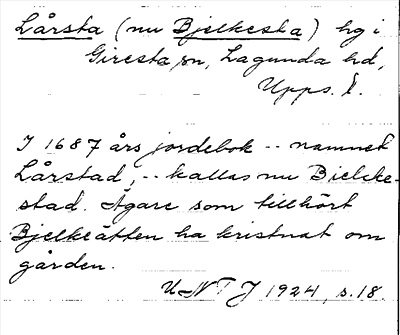 Lårsta (nu Bjelkesta) hg i
Giresta sn, Lagunda hd,
Upps. l.
I 1687 års jordebok -- namnet
Lårstad, -- kallas nu Bielke-
stad. Ägare som tillhört
Bjelkeätten ha kristnat om
gården.
UNT J 1924, s. 18.